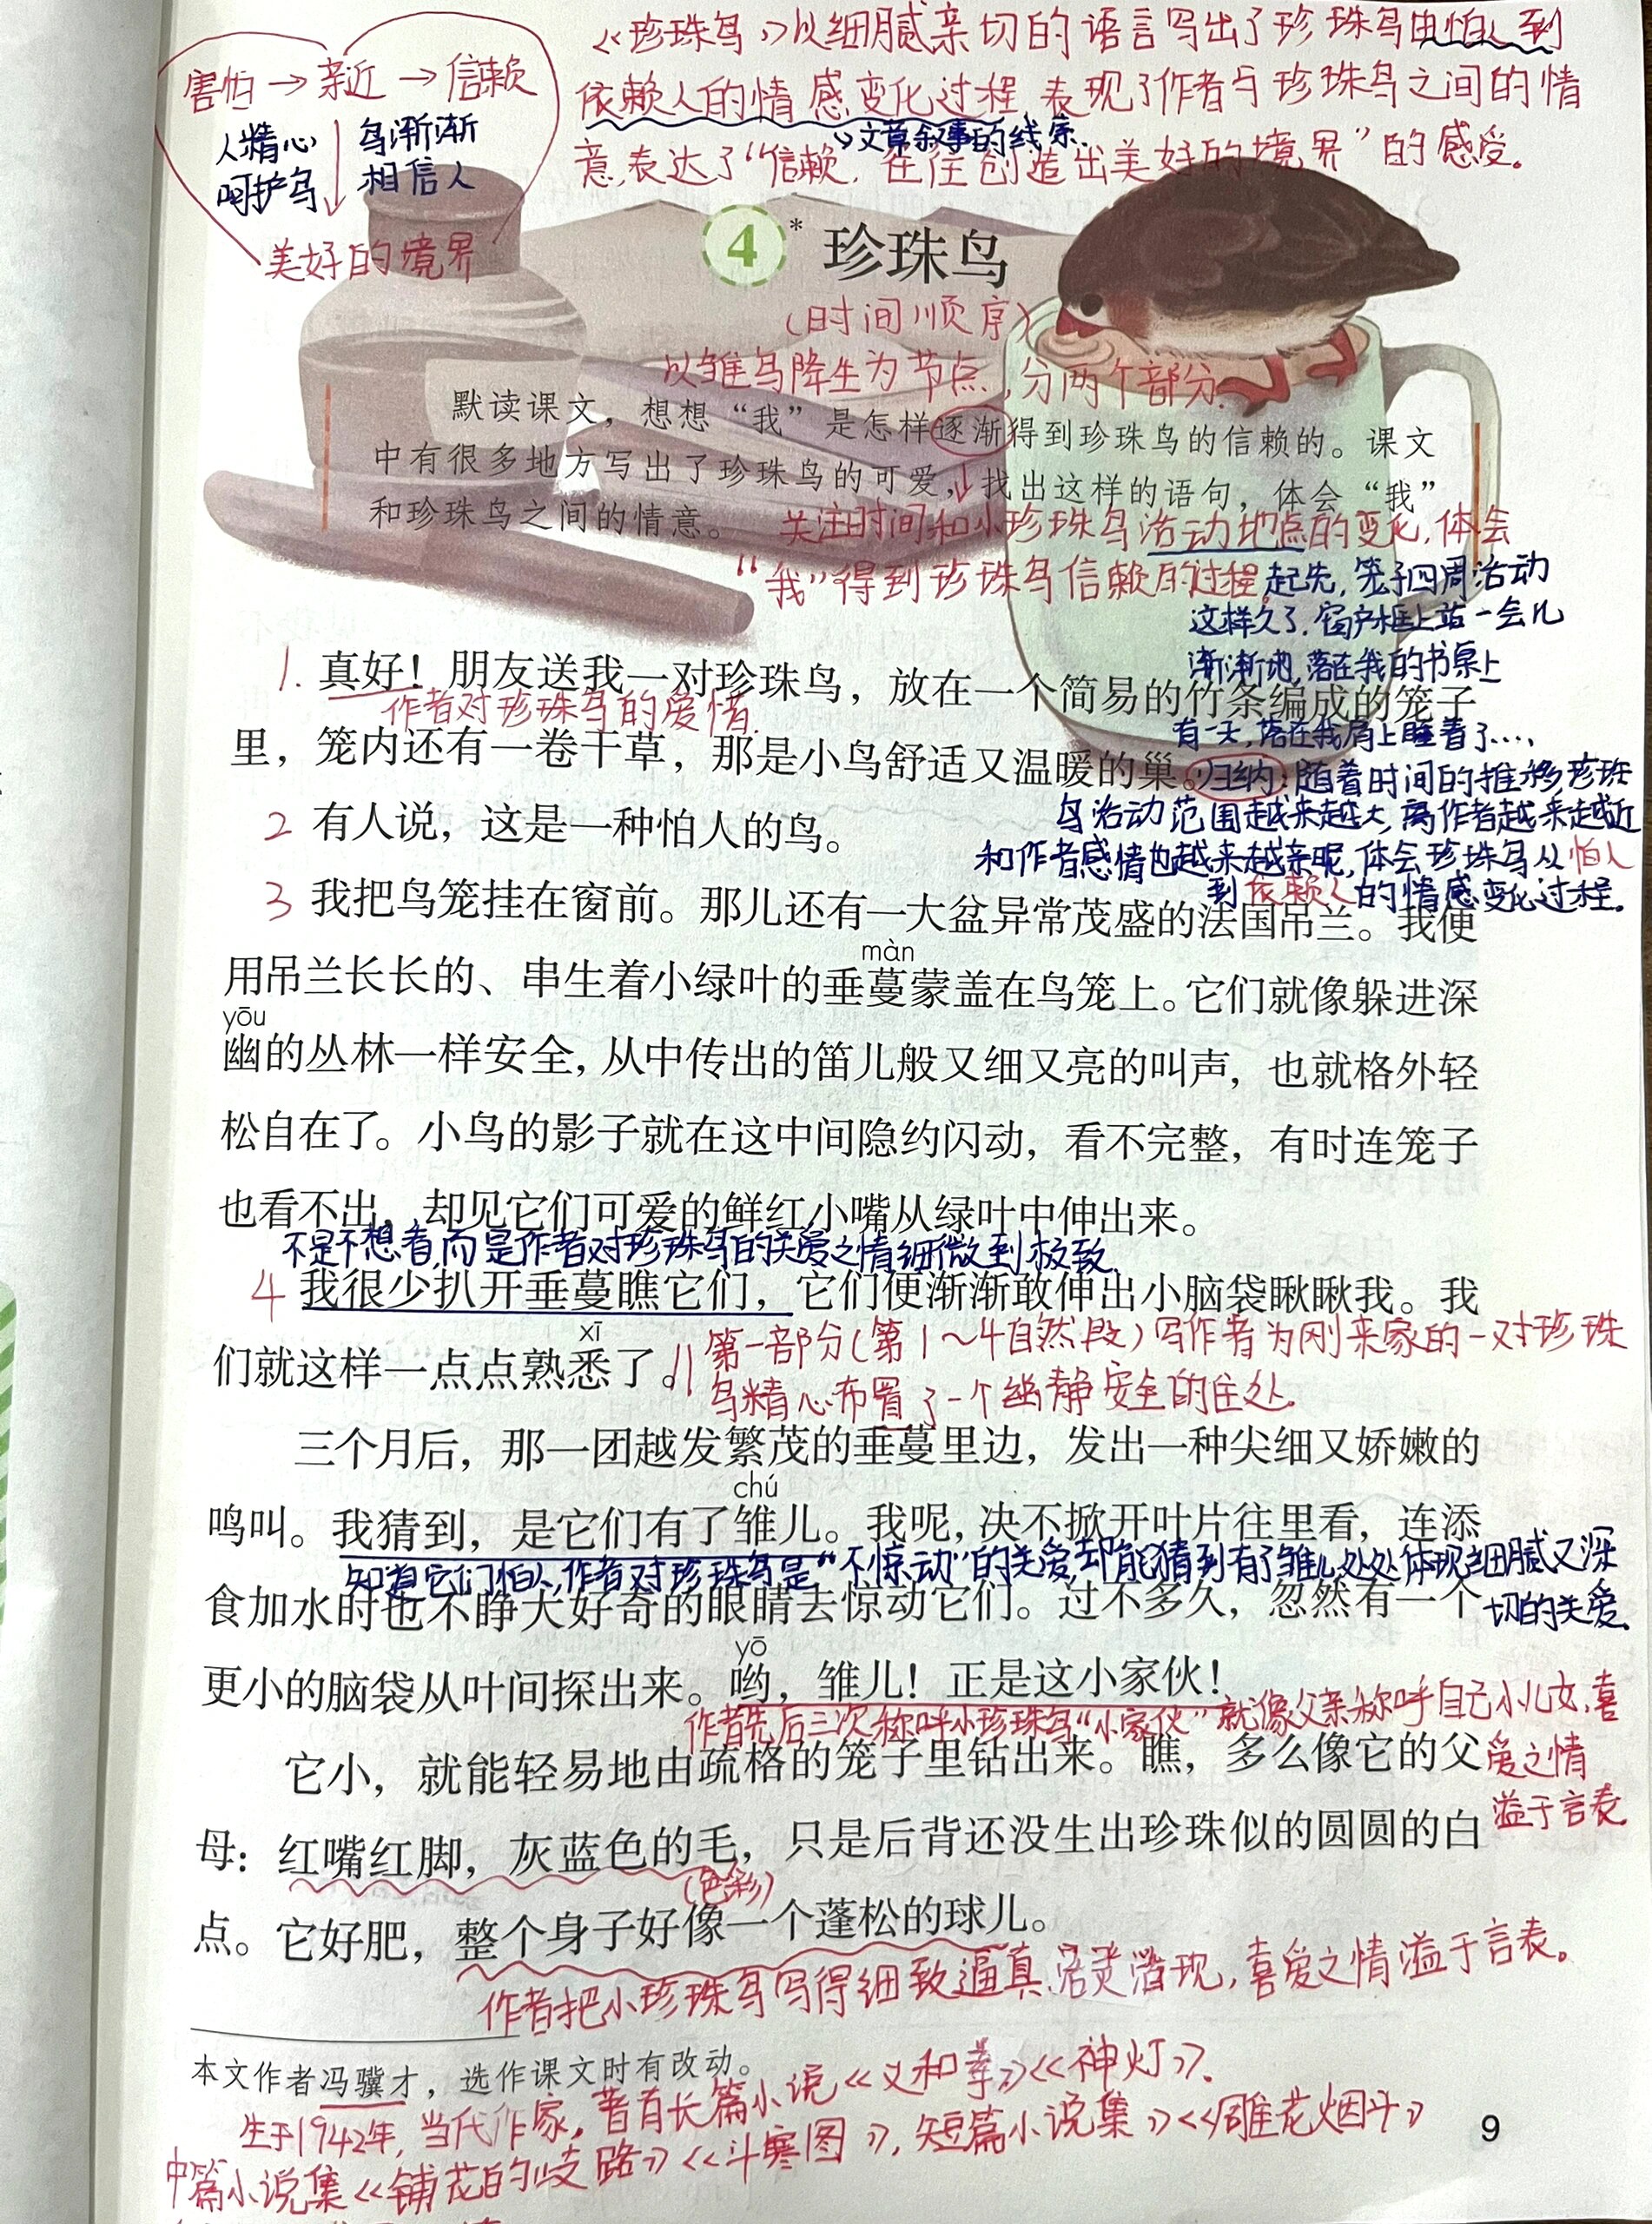 《珍珠鸟》以细腻亲切的语言写出了珍珠鸟由怕人到
依赖人的情感变化过程,表现了作者与珍珠鸟之间的情
→文章叙事的线索.
意,表达了“信赖,往往创造出美好的境界”的感受。
害怕→亲近→信赖
人精心 鸟渐渐
呵护鸟 相信人
美好的境界
4* 珍珠鸟
(时间顺序)
以雏鸟降生为节点,分两个部分.
默读课文,想想“我”是怎样逐渐得到珍珠鸟的信赖的。课文
中有很多地方写出了珍珠鸟的可爱,找出这样的语句,体会“我”
和珍珠鸟之间的情意。
关注时间和小珍珠鸟活动地点的变化,体会
“我”得到珍珠鸟信赖的过程.
起先,笼子四周活动
这样久了,窗户框上站一会儿
渐渐地,落在我的书桌上
有一天,落在我肩上睡着了…,
归纳:随着时间的推移,珍珠
鸟活动范围越来越大,离作者越来越近
和作者感情也越来越亲昵,体会珍珠鸟从怕人
到依赖人的情感变化过程.
1. 真好!朋友送我一对珍珠鸟,放在一个简易的竹条编成的笼子
作者对珍珠鸟的爱惜.
里,笼内还有一卷干草,那是小鸟舒适又温暖的巢。
2 有人说,这是一种怕人的鸟。
3 我把鸟笼挂在窗前。那儿还有一大盆异常茂盛的法国吊兰。我便
màn
用吊兰长长的、串生着小绿叶的垂蔓蒙盖在鸟笼上。它们就像躲进深
yōu
幽的丛林一样安全,从中传出的笛儿般又细又亮的叫声,也就格外轻
松自在了。小鸟的影子就在这中间隐约闪动,看不完整,有时连笼子
也看不出,却见它们可爱的鲜红小嘴从绿叶中伸出来。
不是不想看,而是作者对珍珠鸟的关爱之情细微到极致.
4 我很少扒开垂蔓瞧它们,它们便渐渐敢伸出小脑袋瞅瞅我。我
xī
们就这样一点点熟悉了。
第一部分(第1~4自然段)写作者为刚来家的一对珍珠
鸟精心布置了一个幽静安全的住处.
三个月后,那一团越发繁茂的垂蔓里边,发出一种尖细又娇嫩的
chú
鸣叫。我猜到,是它们有了雏儿。我呢,决不掀开叶片往里看,连添
知道它们怕人,作者对珍珠鸟是“不惊动”的关爱,却能猜到有了雏儿,处处体现细腻又深
切的关爱.
食加水时也不睁大好奇的眼睛去惊动它们。过不多久,忽然有一个
yō
更小的脑袋从叶间探出来。哟,雏儿!正是这小家伙!
作者先后三次称呼小珍珠鸟“小家伙”就像父亲称呼自己小儿女,喜
爱之情
溢于言表.
它小,就能轻易地由疏格的笼子里钻出来。瞧,多么像它的父
母:红嘴红脚,灰蓝色的毛,只是后背还没生出珍珠似的圆圆的白
(色彩)
点。它好肥,整个身子好像一个蓬松的球儿。
作者把小珍珠鸟写得细致逼真,活灵活现,喜爱之情溢于言表。
本文作者冯骥才,选作课文时有改动。
生于1942年,当代作家,著有长篇小说《义和拳》《神灯》.
中篇小说集《铺花的歧路》《斗寒图》,短篇小说集》《雕花烟斗》
9